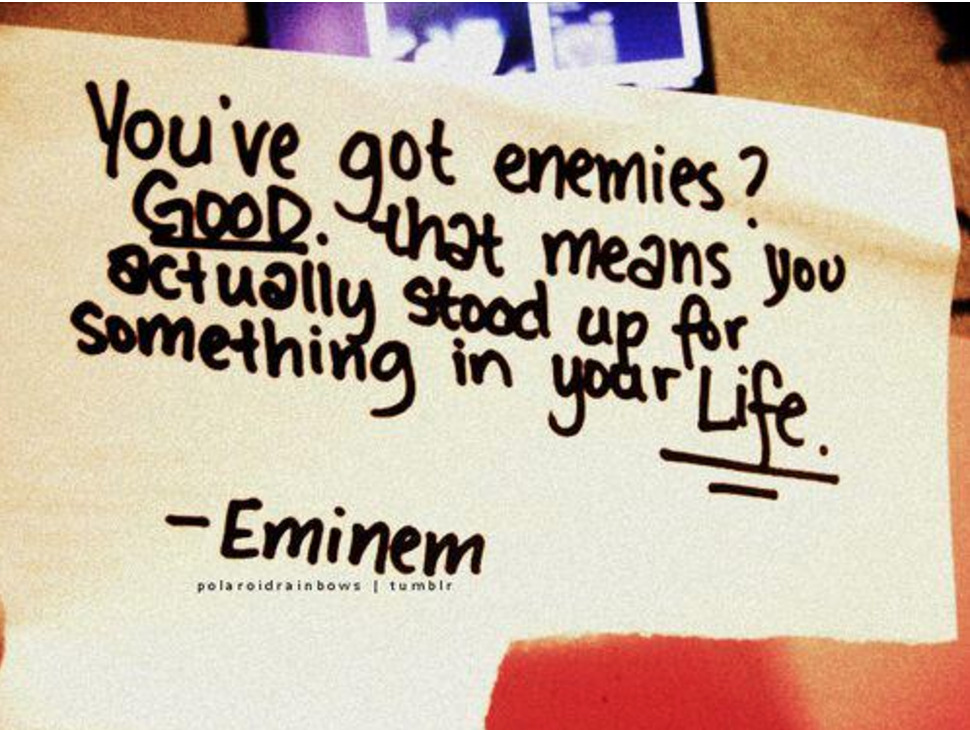 You've got enemies?
GOOD. that means you
actually stood up for
something in your Life.
-Eminem
polaroidrainbows | tumblr